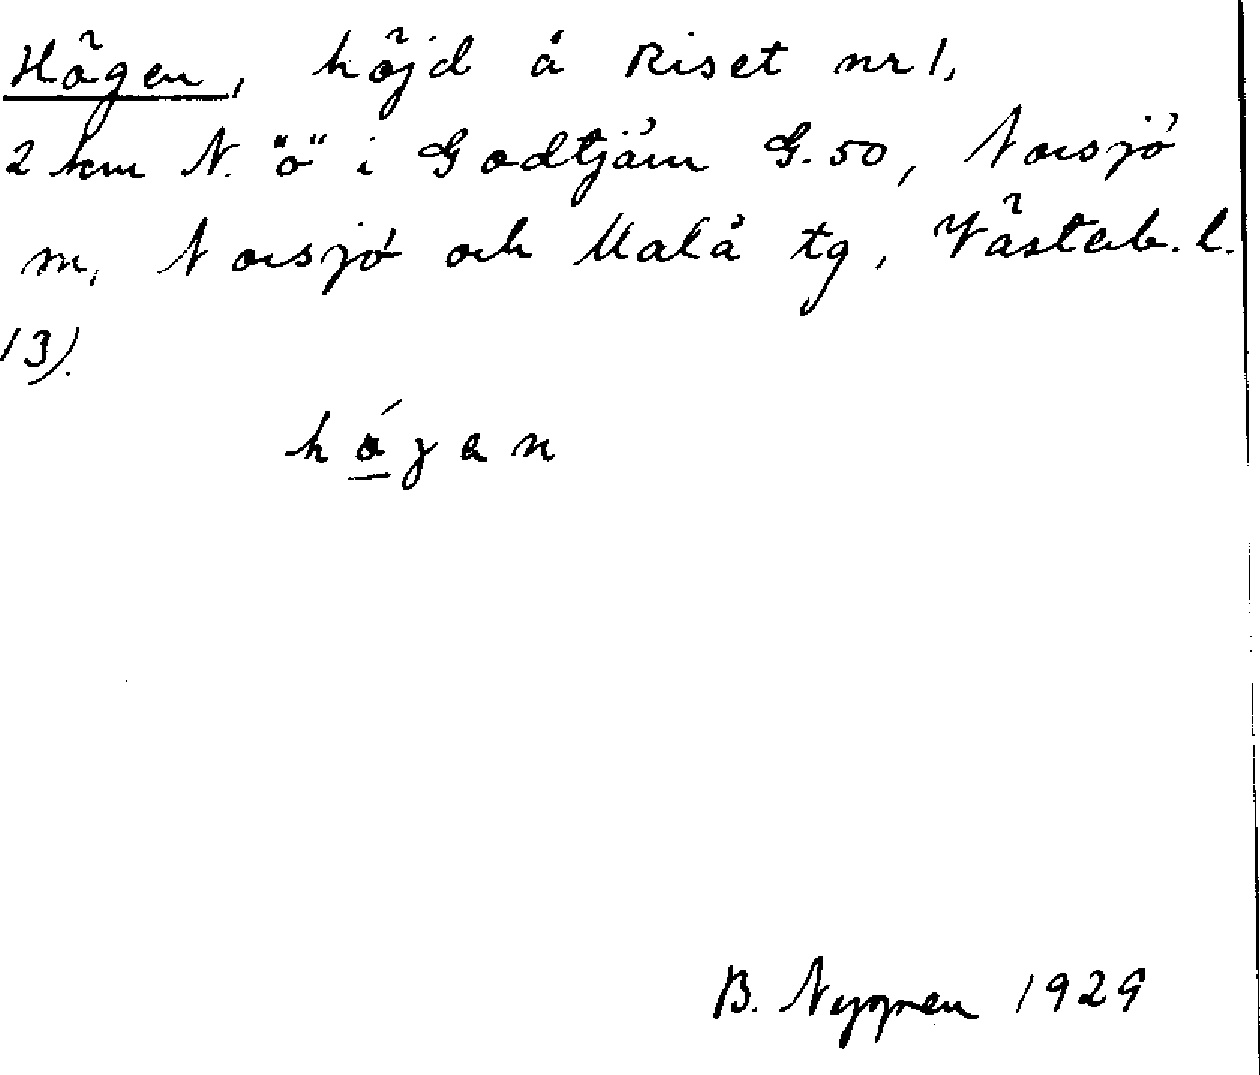 Högen, höjd å Riset nr 1,
2 km N. "ö" i Godtjärn G. 50, Norsjö
m, Norsjö och Malå tg, Västerb. l.
13).
högen
B. 1929